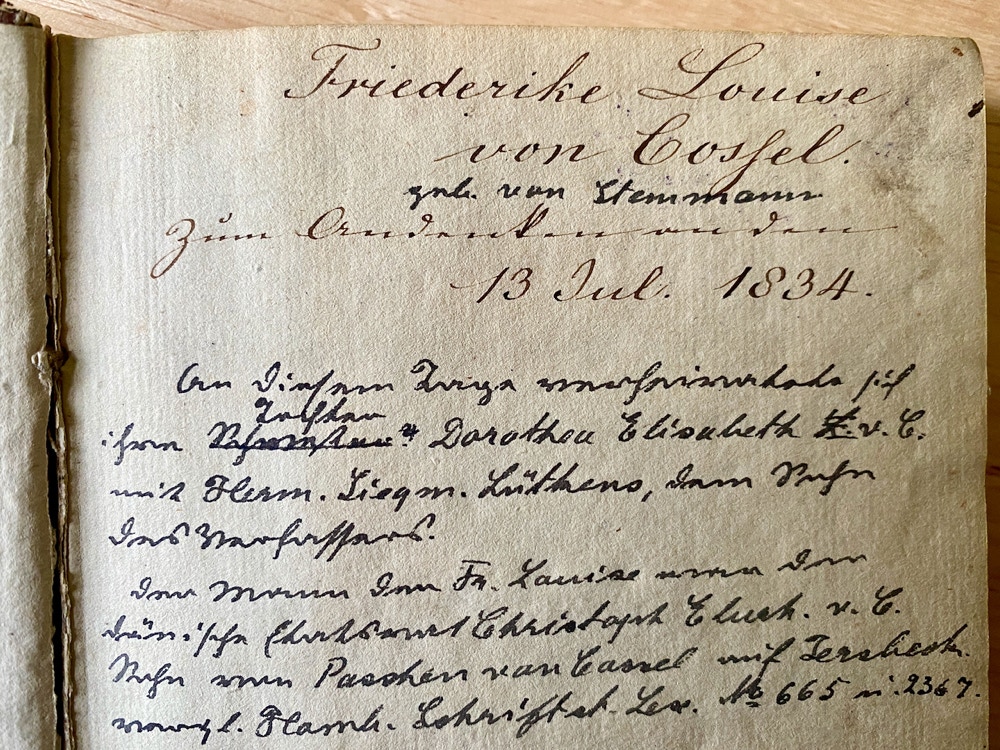 Friederike Louise
von Cossel.
geb. von Stemmann
Zum Andenken an den
13 Jul. 1834.
An diesem Tage verheiratete sich
Tochter
ihre Schwester Dorothea Elisabeth v. C.
mit Herm. Siegm. Lüthens, dem Sohn
des Verfassers.
Der Mann der Fr. Louise war der
dänische Etatsrat Christoph v. C.
Sohn von Paschen von Cossel auf Jersbeck.
vergl. Hamb. Schriftst. Lex. No 665 u. 2367.